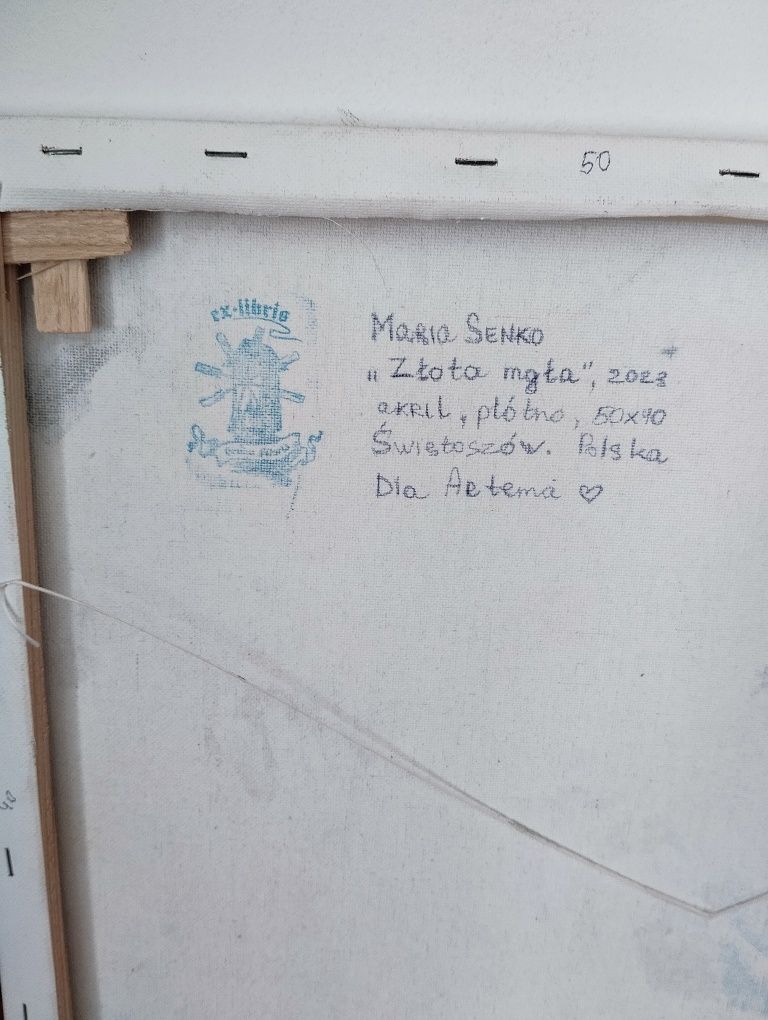 50
ex-libris
MARIA SENKO
„Złota mgła”, 2023
akRIL, płótno, 50x40
Świętoszów. Polska
Dla Artema ♡
40